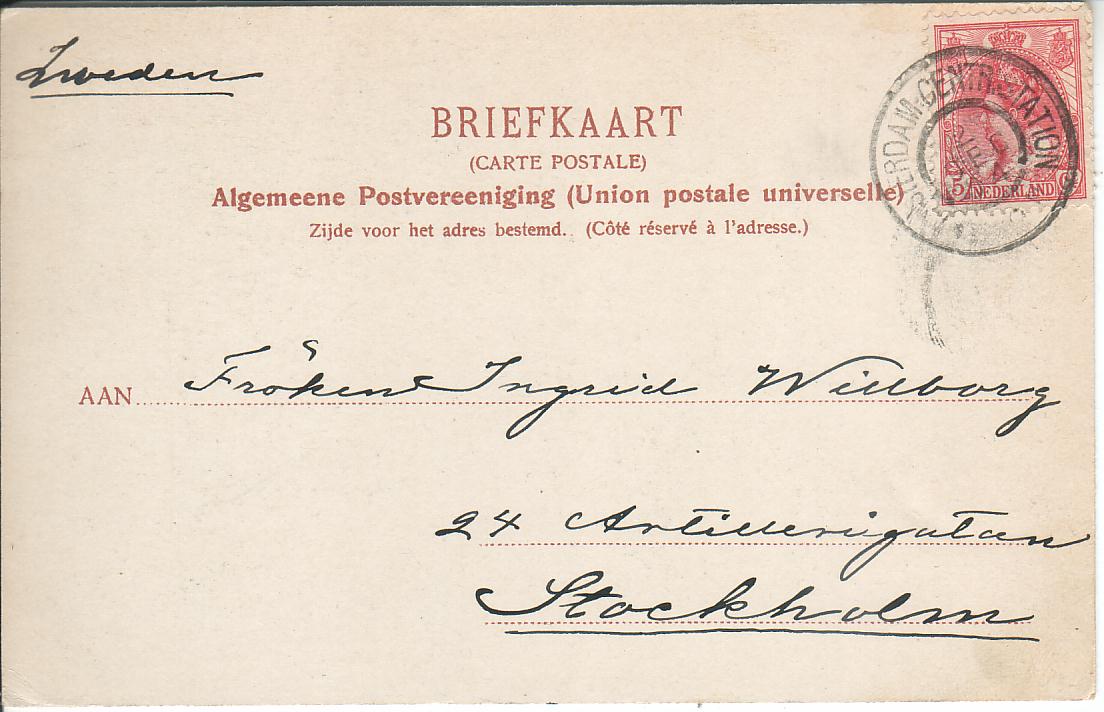 Zweden
BRIEFKAART
(CARTE POSTALE)
Algemeene Postvereeniging (Union postale universelle)
Zijde voor het adres bestemd. (Côté réservé à l'adresse.)
5 C
NEDERLAND
AMSTERDAM-CENTR:STATION
AAN Fröken Ingrid Willborg
24 Artillerigatan
Stockholm